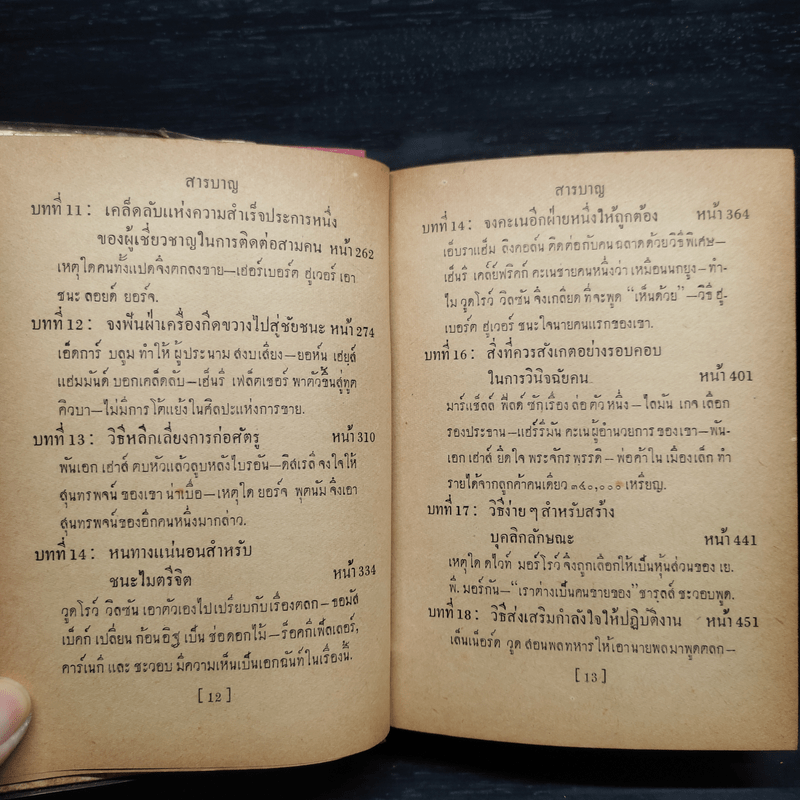 สารบาญ
บทที่ 11 : เคล็ดลับแห่งความสำเร็จประการหนึ่ง
ของผู้เชี่ยวชาญในการติดต่อสามคน หน้า 262
เหตุใดคนทั้งแปดจึงตกลงขาย—เฮอร์เบอร์ต ฮูเวอร์ เอา
ชนะ ลอยด์ ยอร์จ.
บทที่ 12 : จงฟันฝ่าเครื่องกีดขวางไปสู่ชัยชนะ หน้า 274
เอ็ดการ์ บลูม ทำให้ ผู้ประนาม สงบเสียง—ยอห์น เฮยส์
แฮมมันด์ บอกเคล็ดลับ—เฮ็นรี่ เฟล็ตเชอร์ พาตัวขึ้นสู่ทูต
คิวบา—ไม่มีการ โต้แย้งในศิลปะแห่งการขาย.
บทที่ 13 : วิธีหลีกเลี่ยงการก่อศัตรู หน้า 310
พันเอก เฮาส์ ตบหัวแล้วลูบหลังไบรอัน—ดิสเรลี จงใจให้
สุนทรพจน์ ของเขา น่าเบื่อ—เหตุใด ยอร์จ พุตนัม จึงเอา
สุนทรพจน์ของอีกคนหนึ่งมากล่าว.
บทที่ 14 : หนทางแน่นอนสำหรับ
ชนะไมตรีจิต หน้า 334
วูดโรว์ วิลซัน เอาตัวเองไปเปรียบกับเรื่องตลก—ธอมัส
เบ็คก์ เปลี่ยน ก้อนอิฐ เป็น ช่อดอกไม้—ร็อคกี้เฟ็ลเลอร์,
คาร์เนกี้ และ ชะวอบ มีความเห็นเป็นเอกฉันท์ในเรื่องนี้.
[ 12 ]
สารบาญ
บทที่ 14 : จงคะเนอีกฝ่ายหนึ่งให้ถูกต้อง หน้า 364
เอ็บราแฮ็ม ลิงคอล์น ติดต่อกับคน ฉลาดด้วยวิธีพิเศษ—
เฮ็นรี่ เคล์ย์ฟริคก์ คะเนชายคนหนึ่งว่า เหมือนนกยูง—ทำ-
ไม วูดโรว์ วิลซัน จึงเกลียด ที่จะพูด “เห็นด้วย”—วิธี ฮู-
เบอร์ต ฮูเวอร์ ชนะใจนายคนแรกของเขา.
บทที่ 16 : สิ่งที่ควรสังเกตอย่างรอบคอบ
ในการวินิจฉัยคน หน้า 401
มาร์แช็ลล์ ฟีลด์ ซักเรื่อง ล่อ ตัว หนึ่ง—ไลมัน เกจ เลือก
รองประธาน—แฮร์ริมัน คะเนผู้อำนวยการ ของเขา—พัน-
เอก เฮาส์ ยึดใจ พระจักรพรรดิ—พ่อค้าใน เมืองเล็ก ทำ
รายได้จากลูกค้าคนเดียว ๓๔๐,๐๐๐ เหรียญ.
บทที่ 17 : วิธีง่าย ๆ สำหรับสร้าง
บุคลิกลักษณะ หน้า 441
เหตุใด ดไวท์ มอร์โรว์ จึงถูกเลือกให้เป็นหุ้นส่วนของ เย.
พี. มอร์กัน—“เราต่างเป็นคนขายของ” ชารลส์ ชะวอบพูด.
บทที่ 18 : วิธีส่งเสริมกำลังใจให้ปฏิบัติงาน หน้า 451
เล็นเน็อร์ด วูด สอนพลทหารให้เอานายพลมาพูดตลก—
[ 13 ]